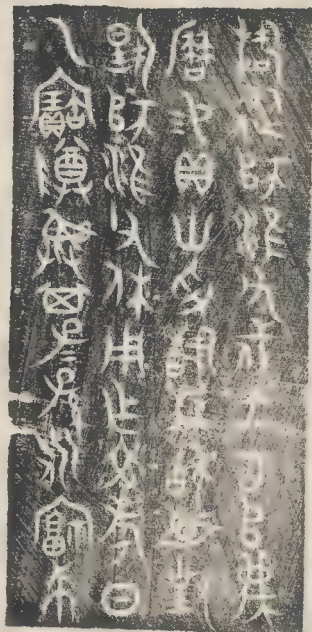 稽從師淮父戍于古𠂤蔑
曆易貝卅寽稽拜𩒨首對
揚師淮父休用乍文考日
乙寶尊彝其子子孫永福